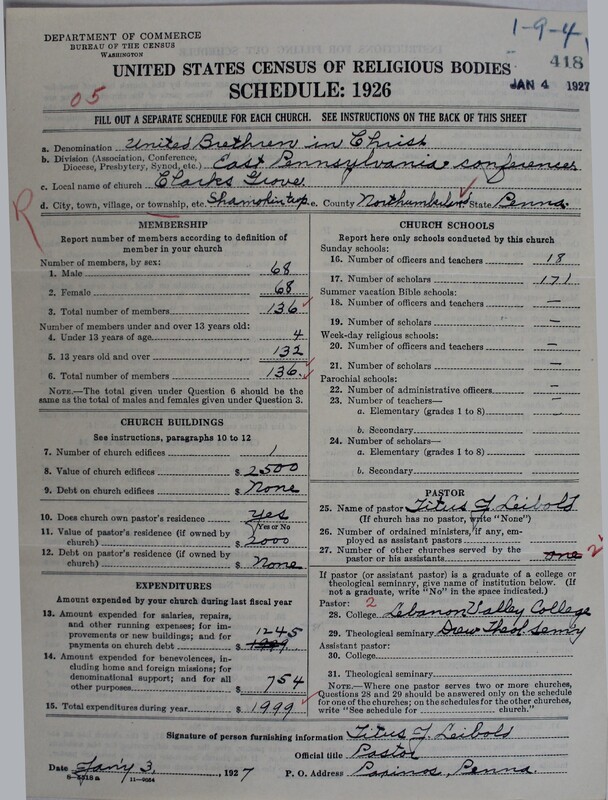 DEPARTMENT OF COMMERCE
BUREAU OF THE CENSUS
WASHINGTON
1-9-4
418
JAN 4 1927
UNITED STATES CENSUS OF RELIGIOUS BODIES
SCHEDULE: 1926
05
FILL OUT A SEPARATE SCHEDULE FOR EACH CHURCH. SEE INSTRUCTIONS ON THE BACK OF THIS SHEET
a. Denomination United Brethren in Christ
b. Division (Association, Conference, Diocese, Presbytery, Synod, etc.) East Pennsylvania conference
c. Local name of church Clarks Grove
R
d. City, town, village, or township, etc. Shamokin twp e. County Northumberl'd State Penna.
MEMBERSHIP
Report number of members according to definition of
member in your church
Number of members, by sex:
1. Male 68
2. Female 68
3. Total number of members 136
Number of members under and over 13 years old:
4. Under 13 years of age 4
5. 13 years old and over 132
6. Total number of members 136
NOTE.—The total given under Question 6 should be
the same as the total of males and females given under Question 3.
CHURCH BUILDINGS
See instructions, paragraphs 10 to 12
7. Number of church edifices 1
8. Value of church edifices $ 2500
9. Debt on church edifices $ None
10. Does church own pastor's residence Yes
Yes or No
11. Value of pastor's residence (if owned by
church) $ 2000
12. Debt on pastor's residence (if owned by
church) $ None
EXPENDITURES
Amount expended by your church during last fiscal year
13. Amount expended for salaries, repairs,
and other running expenses; for im-
provements or new buildings; and for
payments on church debt $ 1245
1999
14. Amount expended for benevolences,
including home and foreign missions; for
denominational support; and for all
other purposes $ 754
15. Total expenditures during year $ 1999
CHURCH SCHOOLS
Report here only schools conducted by this church
Sunday schools:
16. Number of officers and teachers 18
17. Number of scholars 171
Summer vacation Bible schools:
18. Number of officers and teachers —
19. Number of scholars —
Week-day religious schools:
20. Number of officers and teachers —
21. Number of scholars —
Parochial schools:
22. Number of administrative officers —
23. Number of teachers—
a. Elementary (grades 1 to 8) —
b. Secondary —
24. Number of scholars—
a. Elementary (grades 1 to 8) —
b. Secondary —
PASTOR
25. Name of pastor Titus Y. Leibold
(If church has no pastor, write "None")
26. Number of ordained ministers, if any, em-
ployed as assistant pastors
27. Number of other churches served by the
pastor or his assistants one 2
If pastor (or assistant pastor) is a graduate of a college or
theological seminary, give name of institution below. (If
not a graduate, write "No" in the space indicated.)
Pastor: 2
28. College Lebanon Valley College
29. Theological seminary Drew Theol. Sem'y
Assistant pastor:
30. College
31. Theological seminary
NOTE.—Where one pastor serves two or more churches,
Questions 28 and 29 should be answered only on the schedule
for one of the churches; on the schedules for the other churches,
write "See schedule for church."
Signature of person furnishing information Titus Y. Leibold
Official title Pastor
Date Jan'y 3, 1927 P. O. Address Paxinos, Penna.
8-5318a 11-9064